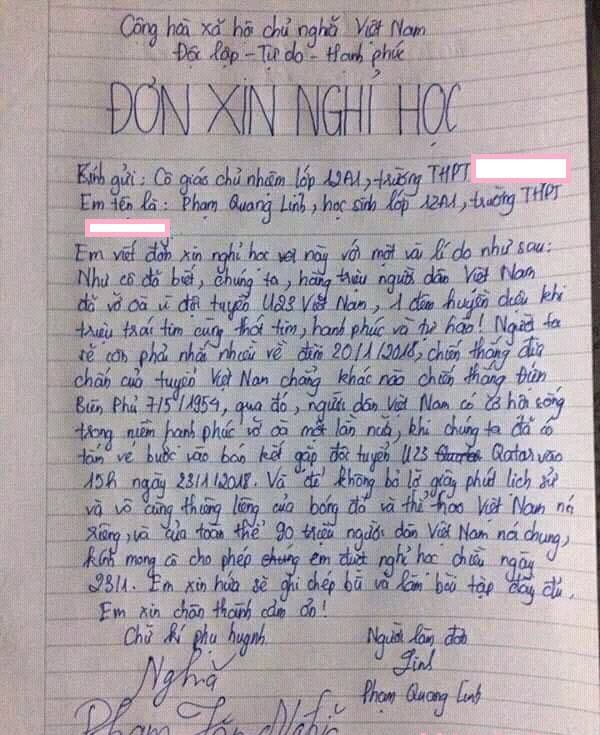 Cộng hoà xã hội chủ nghĩa Việt Nam
Độc lập - Tự do - Hạnh phúc
ĐƠN XIN NGHỈ HỌC
Kính gửi: Cô giáo chủ nhiệm lớp 12A1, trường THPT
Em tên là: Phạm Quang Linh, học sinh lớp 12A1, trường THPT
Em viết đơn xin nghỉ học này với một vài lí do như sau:
Như cô đã biết, chúng ta, hàng triệu người dân Việt Nam
đã vỡ oà vì đội tuyển U23 Việt Nam, 1 đêm huyền diệu khi
triệu trái tim cùng thổn tim, hạnh phúc và tự hào! Người ta
sẽ còn phải nhắc nhiều về đêm 20/1/2018, chiến thắng địa
chấn của tuyển Việt Nam chẳng khác nào chiến thắng Điện
Biên Phủ 7/5/1954, qua đó, người dân Việt Nam có cơ hội sống
trong niềm hạnh phúc vỡ oà một lần nữa, khi chúng ta đã có
tấm vé bước vào bán kết gặp đội tuyển U23 Qatar vào
15h ngày 23/1/2018. Và để không bỏ lỡ giây phút lịch sử
và vô cùng thiêng liêng của bóng đá và thể thao Việt Nam nói
riêng, và của toàn thể 90 triệu người dân Việt Nam nói chung,
kính mong cô cho phép chúng em được nghỉ học chiều ngày
23/1. Em xin hứa sẽ ghi chép bù và làm bài tập đầy đủ.
Em xin chân thành cảm ơn!
Chữ kí phụ huynh Người làm đơn
Nghĩa Linh
Phạm Quang Linh
Phạm Văn Nghĩa